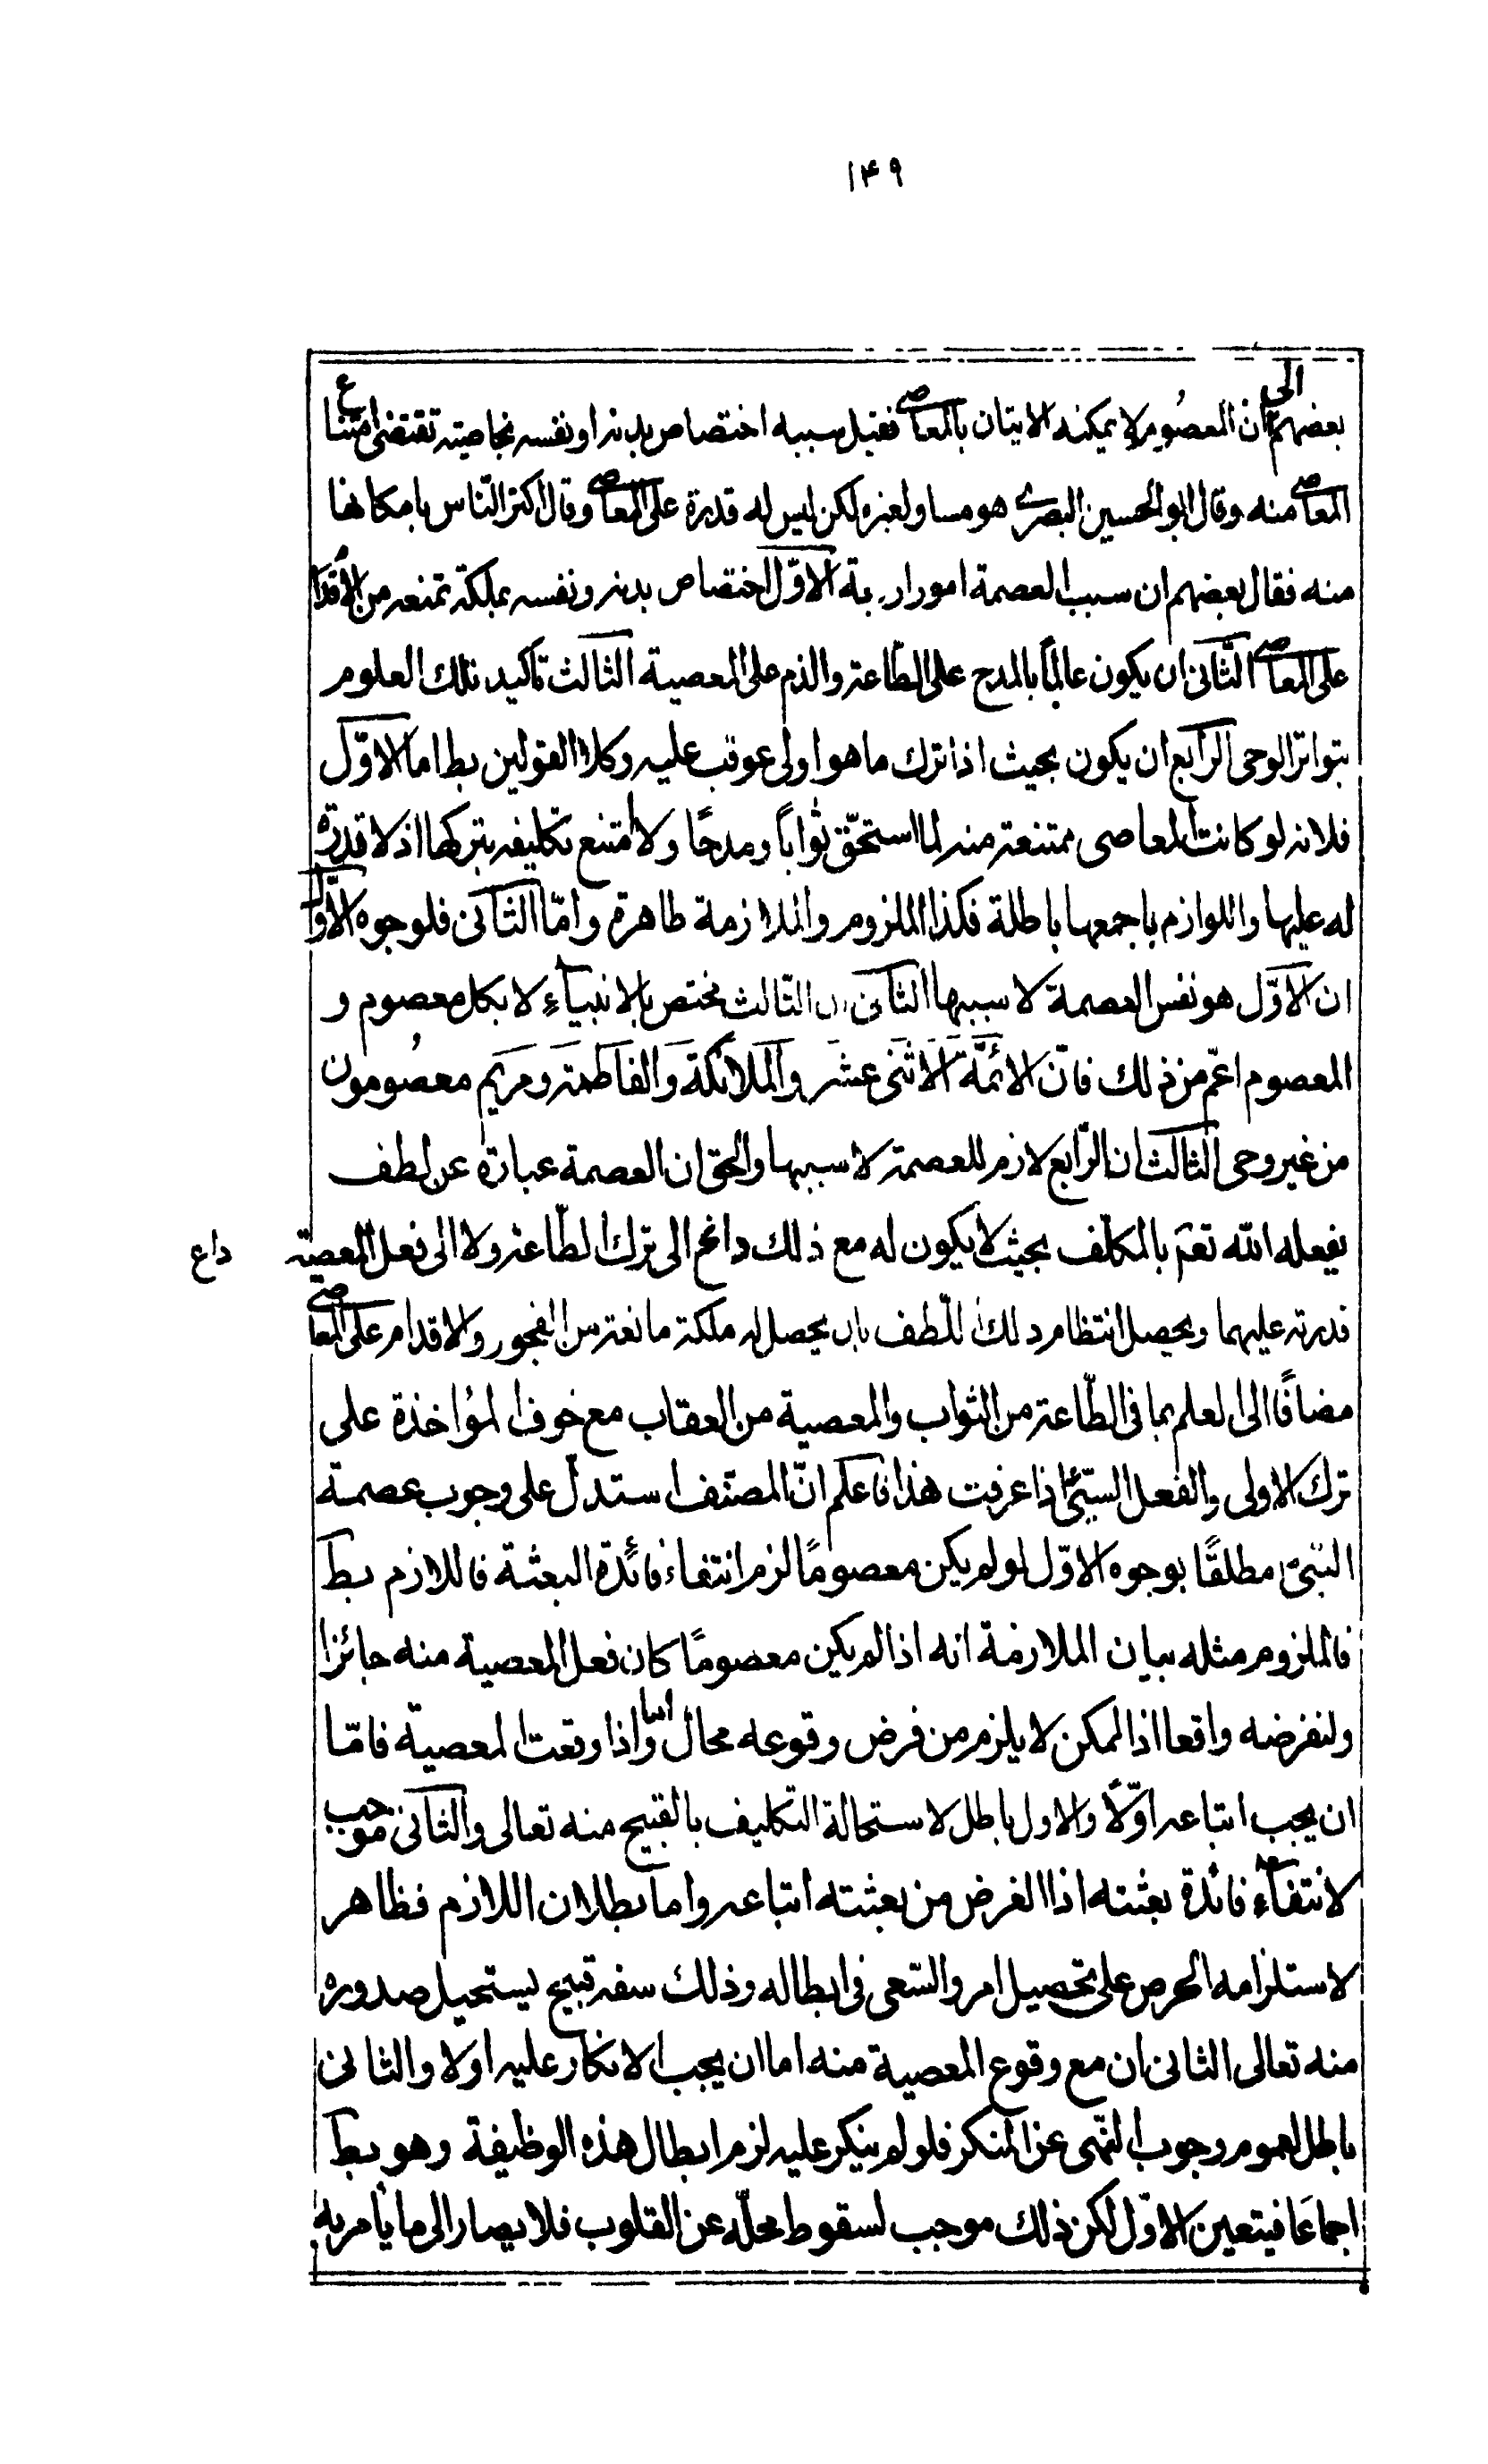 ۱۴۹
بعضهم الى ان المعصوم لا يمكنه الاتيان بالمعاصى فقيل سببه اختصاص بدنه او نفسه بخاصية تقتضى امتناع
المعاصى منه وقال ابو الحسين البصرى هو مساو لغيره لكن ليس له قدرة على المعاصى وقال اكثر النّاس بامكانها
منه فقال بعضهم ان سبب العصمة امور اربعة الاوّل اختصاص بدنه ونفسه بملكة تمنعه من الاقدام
على المعاصى الثّانى ان يكون عالماً بالمدح على الطّاعة والذم على المعصية الثالث تاكيد تلك العلوم
بتواتر الوحى الرابع ان يكون بحيث اذا ترك ما هو اولى عوقب عليه وكلا القولين بط اما الاوّل
فلانه لو كانت المعاصى ممتنعة منه لما استحّق ثواباً ومدحًا ولا امتنع تكليفه بتركها اذ لا قدرة
له عليها واللوازم باجمعها باطلة فكذا الملزوم والملازمة ظاهرة وامّا الثانى فلوجوه الاوّل
ان الاوّل هو نفس العصمة لا سببها الثانى ان الثّالث مختص بالانبياء لا بكل معصوم و
المعصوم اعّم من ذلك فانّ الائمّة الاثنى عشر والملائكة والفاطمة ومريم معصومون
من غير وحى الثالث ان الرّابع لازم للعصمة لا سببها والحق ان العصمة عبارة عن لطف
يفعله الله تعم بالمكلّف بحيث لا يكون له مع ذلك داع الى ترك الطّاعة ولا الى فعل المعصية
داع
قدرته عليهما ويحصل انتظام ذلك اللّطف بان يحصل له ملكة مانعة من الفجور والاقدام على المعاصى
مضافًا الى العلم بما فى الطّاعة من الثواب والمعصية من العقاب مع خوف المؤاخذة على
ترك الاولى والفعل السيّئ اذا عرفت هذا فاعلم انّ المصنّف استدلّ على وجوب عصمة
النبّى مطلقًا بوجوه الاوّل لو لم يكن معصومًا لزم انتفاء فائدة البعثة فاللازم بط
فالملزوم مثله بيان الملازمة انه اذا لم يكن معصومًا كان فعل المعصية منه جائزا
ولنفرضه واقعا اذ الممكن لا يلزم من فرض وقوعه محال واذا وقعت المعصية فامّا
ان يجب اتباعه اوّلاً والاول باطل لاستحالة التكليف بالقبيح منه تعالى والثانى موجب
لانتفاء فائدة بعثته اذا الغرض من بعثته اتباعه واما بطلان اللازم فظاهر
لاستلزامه الحرص على تحصيل امر والسّعى فى ابطاله وذلك سفه قبيح ليستحيل صدوره
منه تعالى الثانى ان مع وقوع المعصية منه اما ان يجب الانكار عليه اولا والثانى
باطل لعموم وجوب النّهى عن المنكر فلو لم ينكر عليه لزم ابطال هذه الوظيفة وهو بط
اجماعًا فيتعين الاوّل لكن ذلك موجب لسقوط محلّه عن القلوب فلا يصار الى ما يأمر به